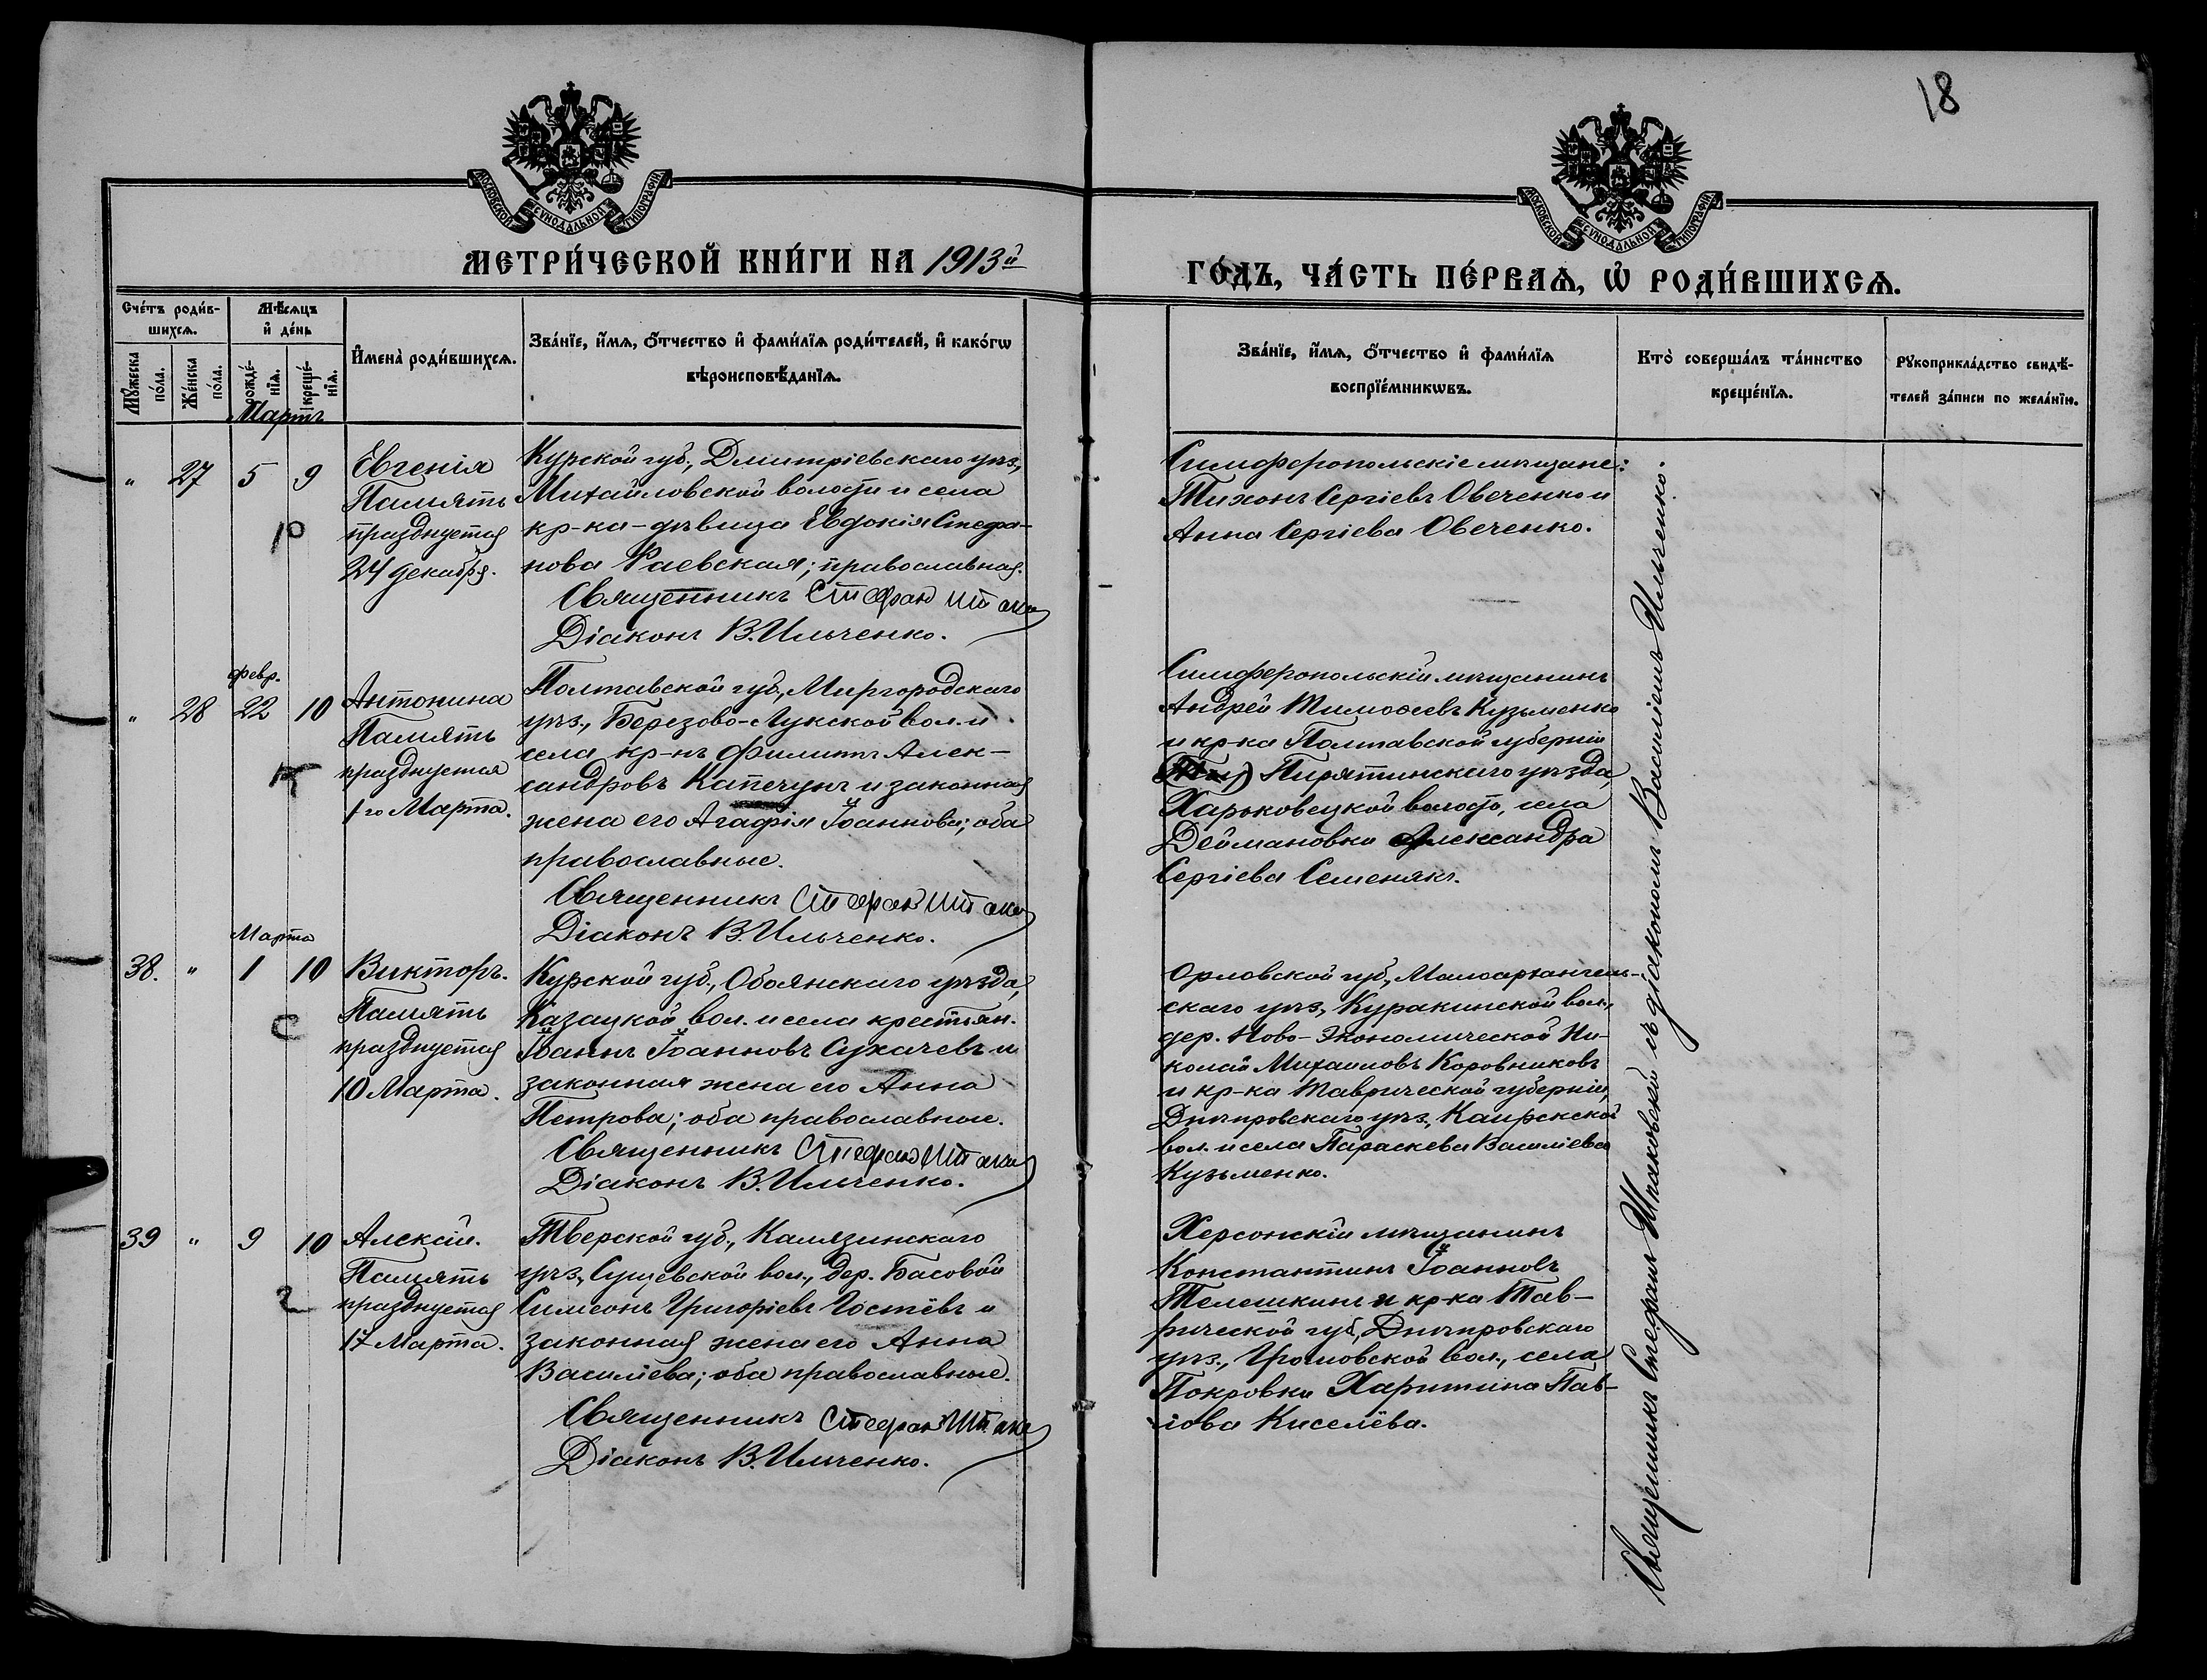 18
МОСКОВСКОЙ СѴНОДАЛЬНОЙ ТИПОГРАФІИ
МОСКОВСКОЙ СѴНОДАЛЬНОЙ ТИПОГРАФІИ
МЕТРИ́ЧЕСКОЙ КНИ́ГИ НА 1913й
ГО́ДЪ, ЧА́СТЬ ПЕ́РВАѦ, Ѡ҆ РОДИ́ВШИХСѦ.
Сче́тъ роди́в-
шихсѧ.
Мѣ́сѧцъ
и҆ де́нь
Мꙋ́жеска
по́ла.
Же́нска
по́ла.
рожде́-
нїѧ.
креще́-
нїѧ.
И҆мена̀ роди́вшихсѧ.
Зва́нїе, и҆́мѧ, ѻ҆́тчество и҆ фами́лїѧ роди́телей, и҆ како́гѡ
вѣроисповѣ́данїѧ.
Зва́нїе, и҆́мѧ, ѻ҆́тчество и҆ фами́лїѧ
воспрїе́мникѡвъ.
Кто̀ соверша́лъ та́инство
креще́нїѧ.
Рꙋкоприкла́дство свидѣ́-
телей за́писи по жела́нїю.
Мартъ
" 27 5 9
Евгенія
Память
празднуется
24 декабря.
Курской губ., Дмитріевскаго уѣз.,
Михайловской волости и села
кр-ка-дѣвица Евдокія Стефа-
нова Раевская; православная.
Священникъ Стефан
Діаконъ В. Ильченко.
Симферопольскіе мѣщане:
Тихонъ Сергіевъ Овеченко и
Анна Сергіева Овеченко.
февр.
" 28 22 10
Антонина
Память
празднуется
1го Марта.
Полтавской губ., Миргородскаго
уѣз., Березово-Лукской вол. и
села кр-нъ Филиппъ Алек-
сандровъ Капечунъ и законная
жена его Агафія Іоаннова; оба
православные.
Священникъ Стефан
Діаконъ В. Ильченко.
Симферопольскій мѣщанинъ
Андрей Тимоѳеевъ Кузьменко
и кр-ка Полтавской губерніи
Пирятинскаго уѣзда,
Харьковецкой волости, села
Деймановки Александра
Сергіева Семенякъ.
Марта
38. " 1 10
Викторъ.
Память
празднуется
10 Марта.
Курской губ., Обоянскаго уѣзда,
Казацкой вол. и села крестьян.
Іоаннъ Іоанновъ Сухачевъ и
законная жена его Анна
Петрова; оба православные.
Священникъ Стефан
Діаконъ В. Ильченко.
Орловской губ., Малоархангель-
скаго уѣз., Куракинской вол.,
дер. Ново-Экономической Ни-
колай Михаиловъ Коровниковъ
и кр-ка Таврической губерніи,
Днѣпровскаго уѣз., Каирской
вол. и села Параскева Василіева
Кузьменко.
39 " 9 10
Алексій.
Память
празднуется
17 Марта.
Тверской губ., Калязинскаго
уѣз., Сущевской вол., дер. Басовой
Симеонъ Григоріевъ Гостёвъ и
законная жена его Анна
Василіева; оба православные.
Священникъ Стефан
Діаконъ В. Ильченко.
Херсонскій мѣщанинъ
Константинъ Іоанновъ
Телешкинъ и кр-ка Тав-
рической губ., Днѣпровскаго
уѣз., Громовской вол., села
Покровки Харитина Пав-
лова Киселёва.
Священникъ Стефанъ съ діакономъ Василіемъ Ильченко.